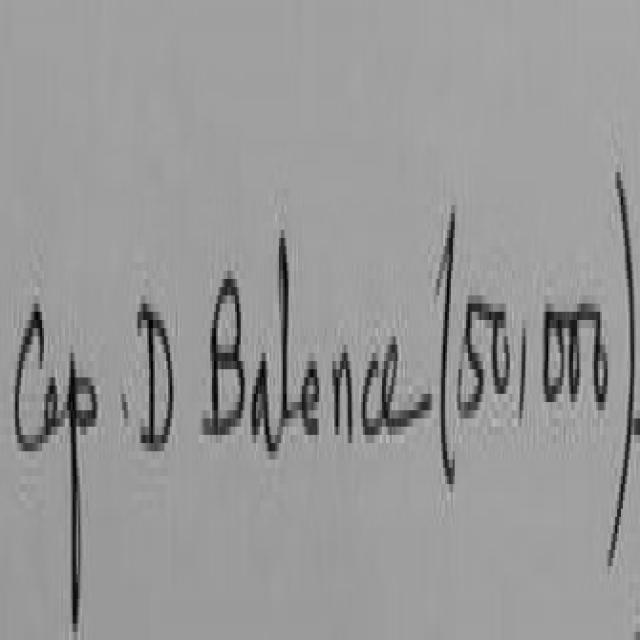 Cap. D Balance (50,000)